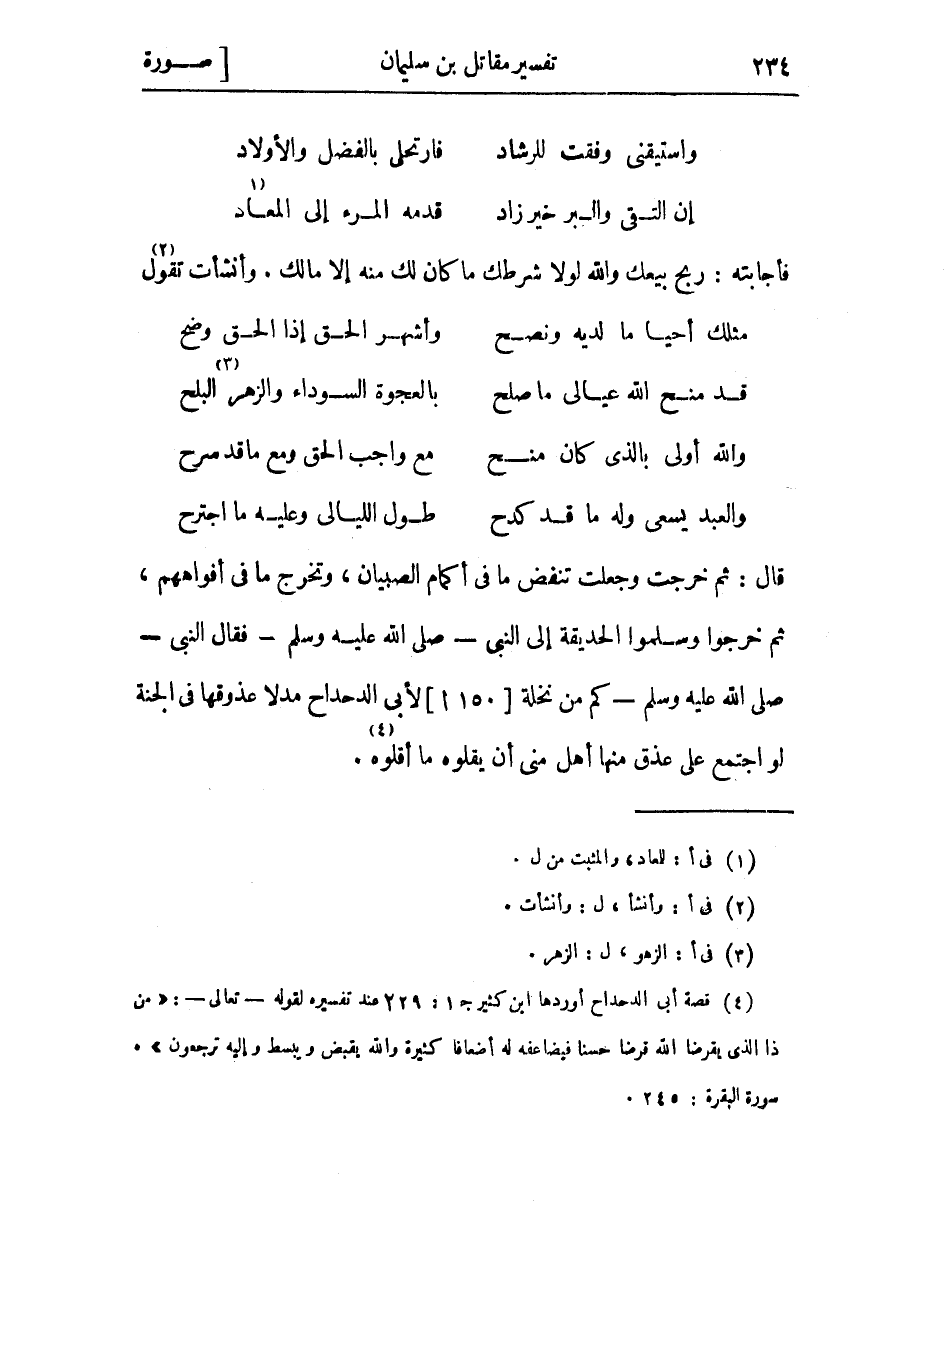 ٢٣٤ تفسير مقاتل بن سليمان [ صــورة
واستيقنى وفقت للرشاد فارتحلى بالفضل والأولاد
إن التــقى والــبر خير زاد قدمه المــرء إلى المعــاد (١)
فأجابته : ربح بيعك والله لولا شرطك ما كان لك منه إلا مالك . وأنشأت تقول (٢)
مثلك أحيــا ما لديه ونصــح وأشهــر الحــق إذا الحــق وضح
قــد منــح الله عيــالى ما صلح بالعجوة الســوداء والزهر (٣) البلح
والله أولى بالذى كان منــــح مع واجب الحق ومع ما قد سرح
والعبد يسعى وله ما قــد كدح طــول الليــالى وعليــه ما اجترح
قال : ثم خرجت وجعلت تنفض ما فى أكمام الصبيان ، وتخرج ما فى أفواههم ،
ثم خرجوا وســلموا الحديقة إلى النبى — صلى الله عليــه وسلم — فقال النبى —
صلى الله عليه وسلم — كم من نخلة [ ١٥٠ أ ] لأبى الدحداح مدلا عذوقها فى الجنة
لو اجتمع على عذق منها أهل منى أن يقلوه ما أقلوه (٤) .
(١) فى أ : للعاد ، والمثبت من ل .
(٢) فى أ : وأنشأ ، ل : وأنشأت .
(٣) فى أ : الزهو ، ل : الزهر .
(٤) قصة أبى الدحداح أوردها ابن كثير جـ ١ : ٢٢٩ عند تفسيره لقوله — تعالى — : « من
ذا الذى يقرضا الله قرضا حسنا فيضاعفه له أضعافا كثيرة والله يقبض ويبسط وإليه ترجعون » .
سورة البقرة : ٢٤٥ .